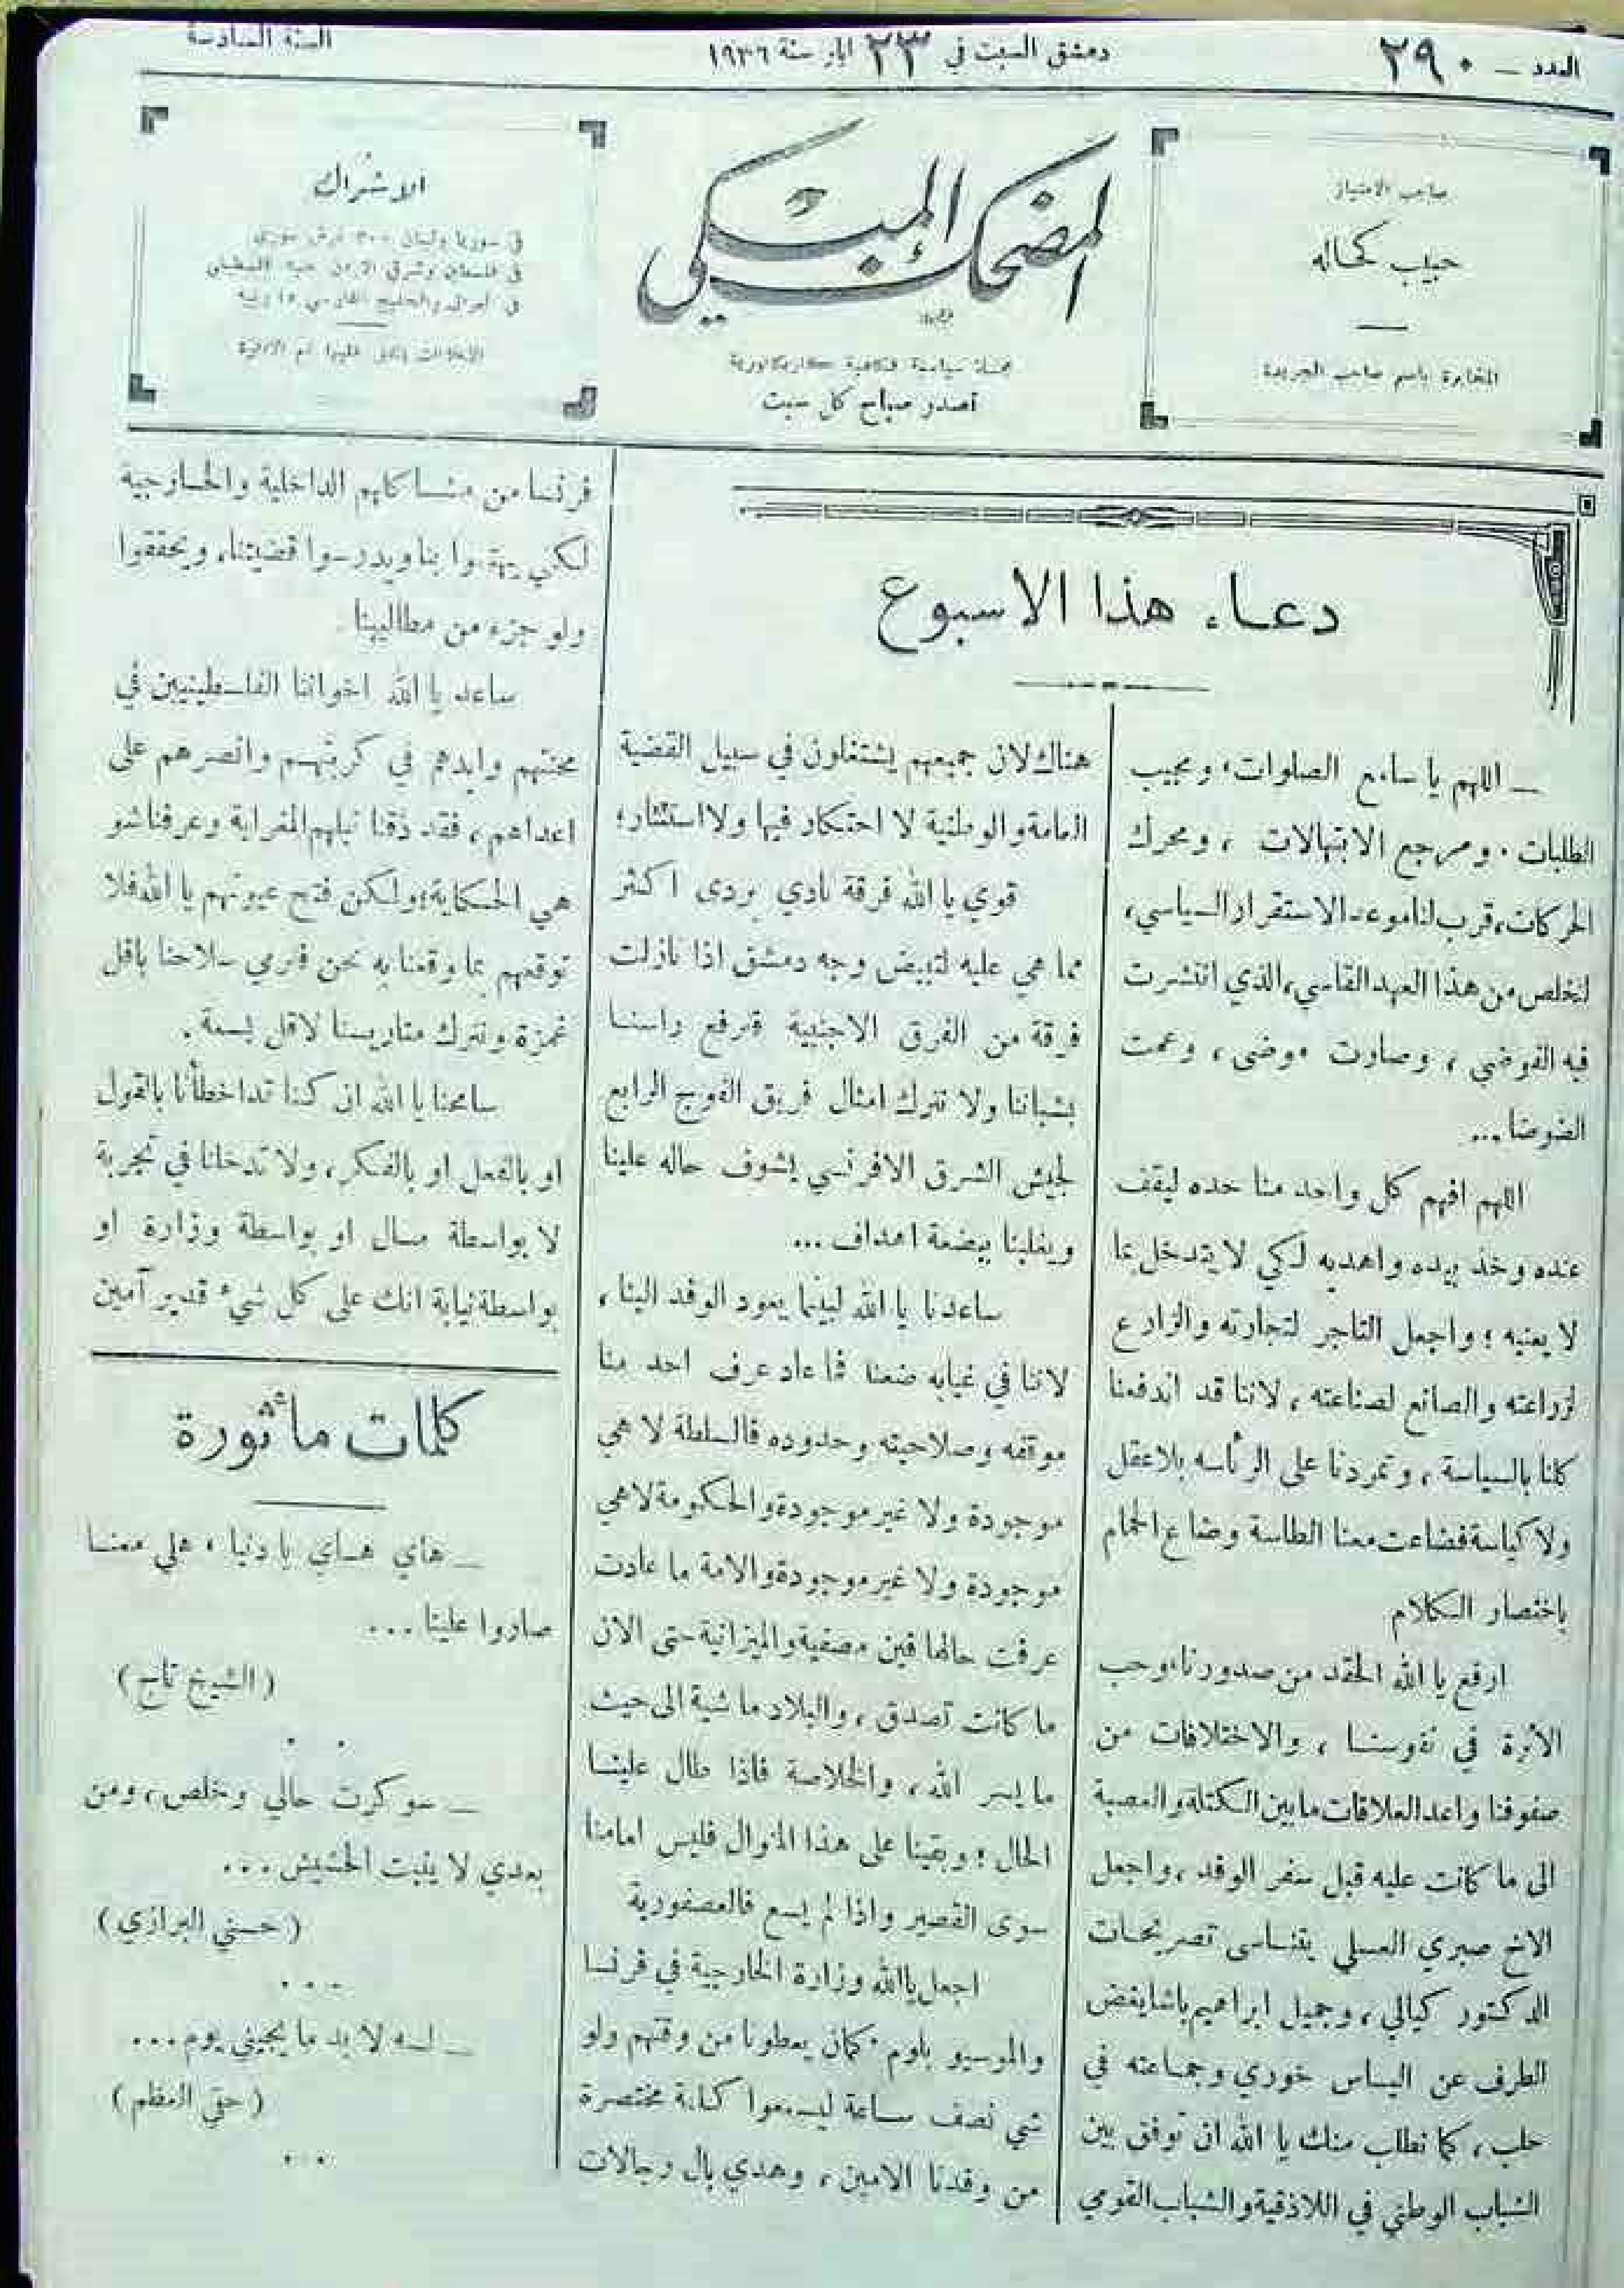 العدد — ٢٩٠
دمشق السبت في ٢٣ ايار سنة ١٩٣٦
السنة السادسة
صاحب الامتياز
حبيب كحاله
المخابرة باسم صاحب الجريدة
المضحك المبكي
مجلة سياسية فكاهية كاريكاتورية
تصدر صباح كل سبت
الاشتراك
في سوريا ولبنان ٣٠٠ قرش سوري
في فلسطين وشرق الاردن جنيه
دعاء هذا الاسبوع
— اللهم يا سامع الصلوات، ومجيب
الطلبات. ومرجع الابتهالات ، ومحرك
الحركات، قرب لنا موعد الاستقرار السياسي،
لنخلص من هذا العهد القاسي، الذي انتشرت
فيه الفوضى ، وصارت موضى ، وعمت
الضوضا...
اللهم افهم كل واحد منا حده ليقف
عنده وخذ بيده واهديه لكي لا يتدخل بما
لا يعنيه ؛ واجعل التاجر لتجارته والزارع
لزراعته والصانع لصناعته ، لاننا قد اندفعنا
كلنا بالسياسة ، وتمردنا على الرئاسه بلا عقل
ولا كياسة فضاعت معنا الطاسة وضاع الحمام
باختصار الكلام
ارفع يا الله الحقد من صدورنا، وحب
الأثرة في نفوسنا ، والاختلافات من
صفوفنا واعد العلاقات ما بين الكتلة والعصبة
الى ما كانت عليه قبل سفر الوفد ، واجعل
الاخ صبري العسلي يتناسى تصريحات
الدكتور كيالي ، وجميل ابراهيم باشا يغض
الطرف عن الياس خوري وجماعته في
حلب ، كما نطلب منك يا الله ان توفق بين
الشباب الوطني في اللاذقية والشباب القومي
هناك لان جميعهم يشتغلون في سبيل القضية
العامة والوطنية لا احتكار فيها ولا استئثار؛
قوي يا الله فرقة نادي بردى اكثر
مما هي عليه لتبيض وجه دمشق اذا نازلت
فرقة من الفرق الاجنبية فترفع راسنا
بشباننا ولا تترك امثال فريق الفوج الرابع
لجيش الشرق الافرنسي يشوف حاله علينا
ويغلبنا ببضعة اهداف ...
ساعدنا يا الله ليثما يعود الوفد الينا ،
لاننا في غيابه ضعنا فما عاد عرف احد منا
موقفه وصلاحيته وحدوده فالسلطة لا هي
موجودة ولا غير موجودة والحكومة لا هي
موجودة ولا غير موجودة والامة ما عادت
عرفت حالها فين مصفية والميزانية حتى الان
ما كانت تصدق ، والبلاد ماشية الى حيث
ما يسر الله ، والخلاصة فاذا طال علينا
الحال ؛ وبقينا على هذا المنوال فليس امامنا
سوى القصير واذا لم يسع فالعصفورية
اجعل يا الله وزارة الخارجية في فرنسا
والموسيو بلوم كمان يعطونا من وقتهم ولو
شي نصف ساعة ليسمعوا كلمة مختصرة
من وفدنا الامين ، وهدي بال رجالات
فرنسا من مشاكلهم الداخلية والخارجية
لكي يهتموا بنا ويدرسوا قضيتنا، ويحققوا
ولو جزء من مطاليبنا .
ساعد يا الله اخواننا الفلسطينيين في
محنتهم وايدهم في كربتهم وانصرهم على
اعداهم ، فقد ذقنا نيلهم المغراية وعرفنا شو
هي الحكاية؛ ولكن فتح عيونهم يا الله فلا
توقعهم بما وقعنا به نحن فنرمي سلاحنا باقل
غمزة ونترك متاريسنا لاقل بسمة .
سامحنا يا الله ان كنا قد اخطأنا بالقول
او بالفعل او بالفكر ، ولا تدخلنا في تجربة
لا بواسطة مال او بواسطة وزارة او
بواسطة نيابة انك على كل شيء قدير آمين
كلمات مأثورة
— هاي هاي يا دنيا ، هلي معنا
صاروا علينا ...
( الشيخ تاج )
— سوكرت حالي وخلص ، ومن
بعدي لا ينبت الحشيش ...
( حسني البرازي )
— لسه لا بد ما يجيني يوم ...
( حقي العظم )